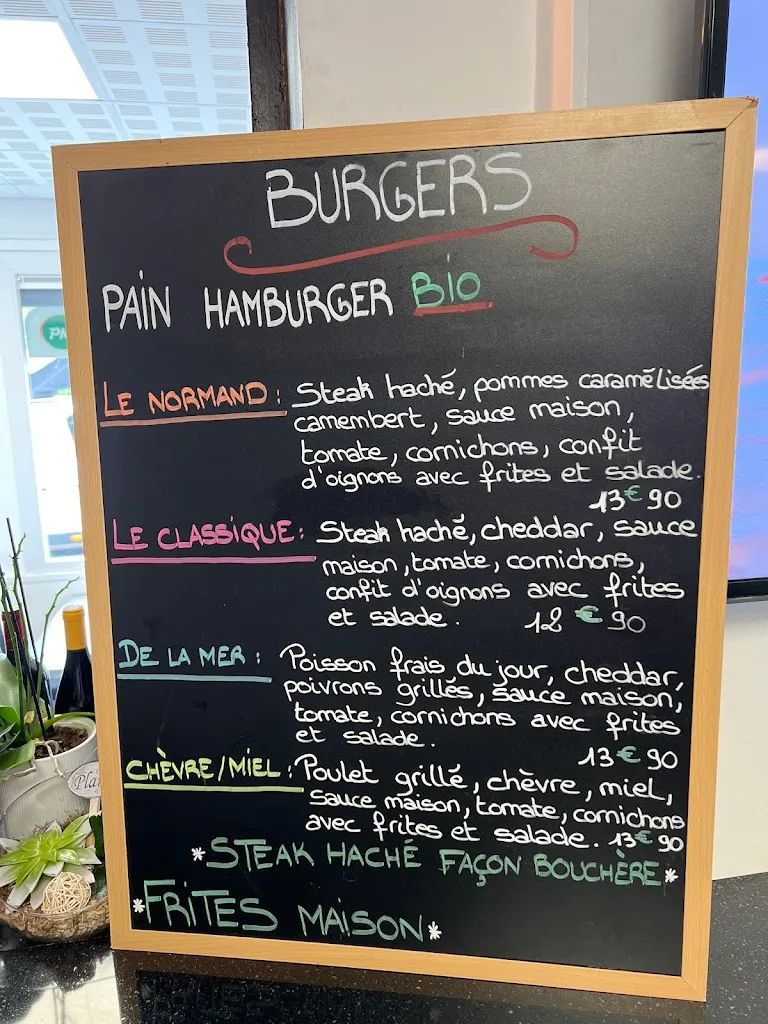 BURGERS
PAIN HAMBURGER BIO
LE NORMAND : Steak haché, pommes caramélisées
camembert, sauce maison,
tomate, cornichons, confit
d'oignons avec frites et salade.
13€90
LE CLASSIQUE : Steak haché, cheddar, sauce
maison, tomate, cornichons,
confit d'oignons avec frites
et salade. 12€90
DE LA MER : Poisson frais du jour, cheddar,
poivrons grillés, sauce maison,
tomate, cornichons avec frites
et salade.
13€90
CHÈVRE/MIEL : Poulet grillé, chèvre, miel,
sauce maison, tomate, cornichons
avec frites et salade. 13€90
*STEAK HACHÉ FAÇON BOUCHÈRE*
*FRITES MAISON*